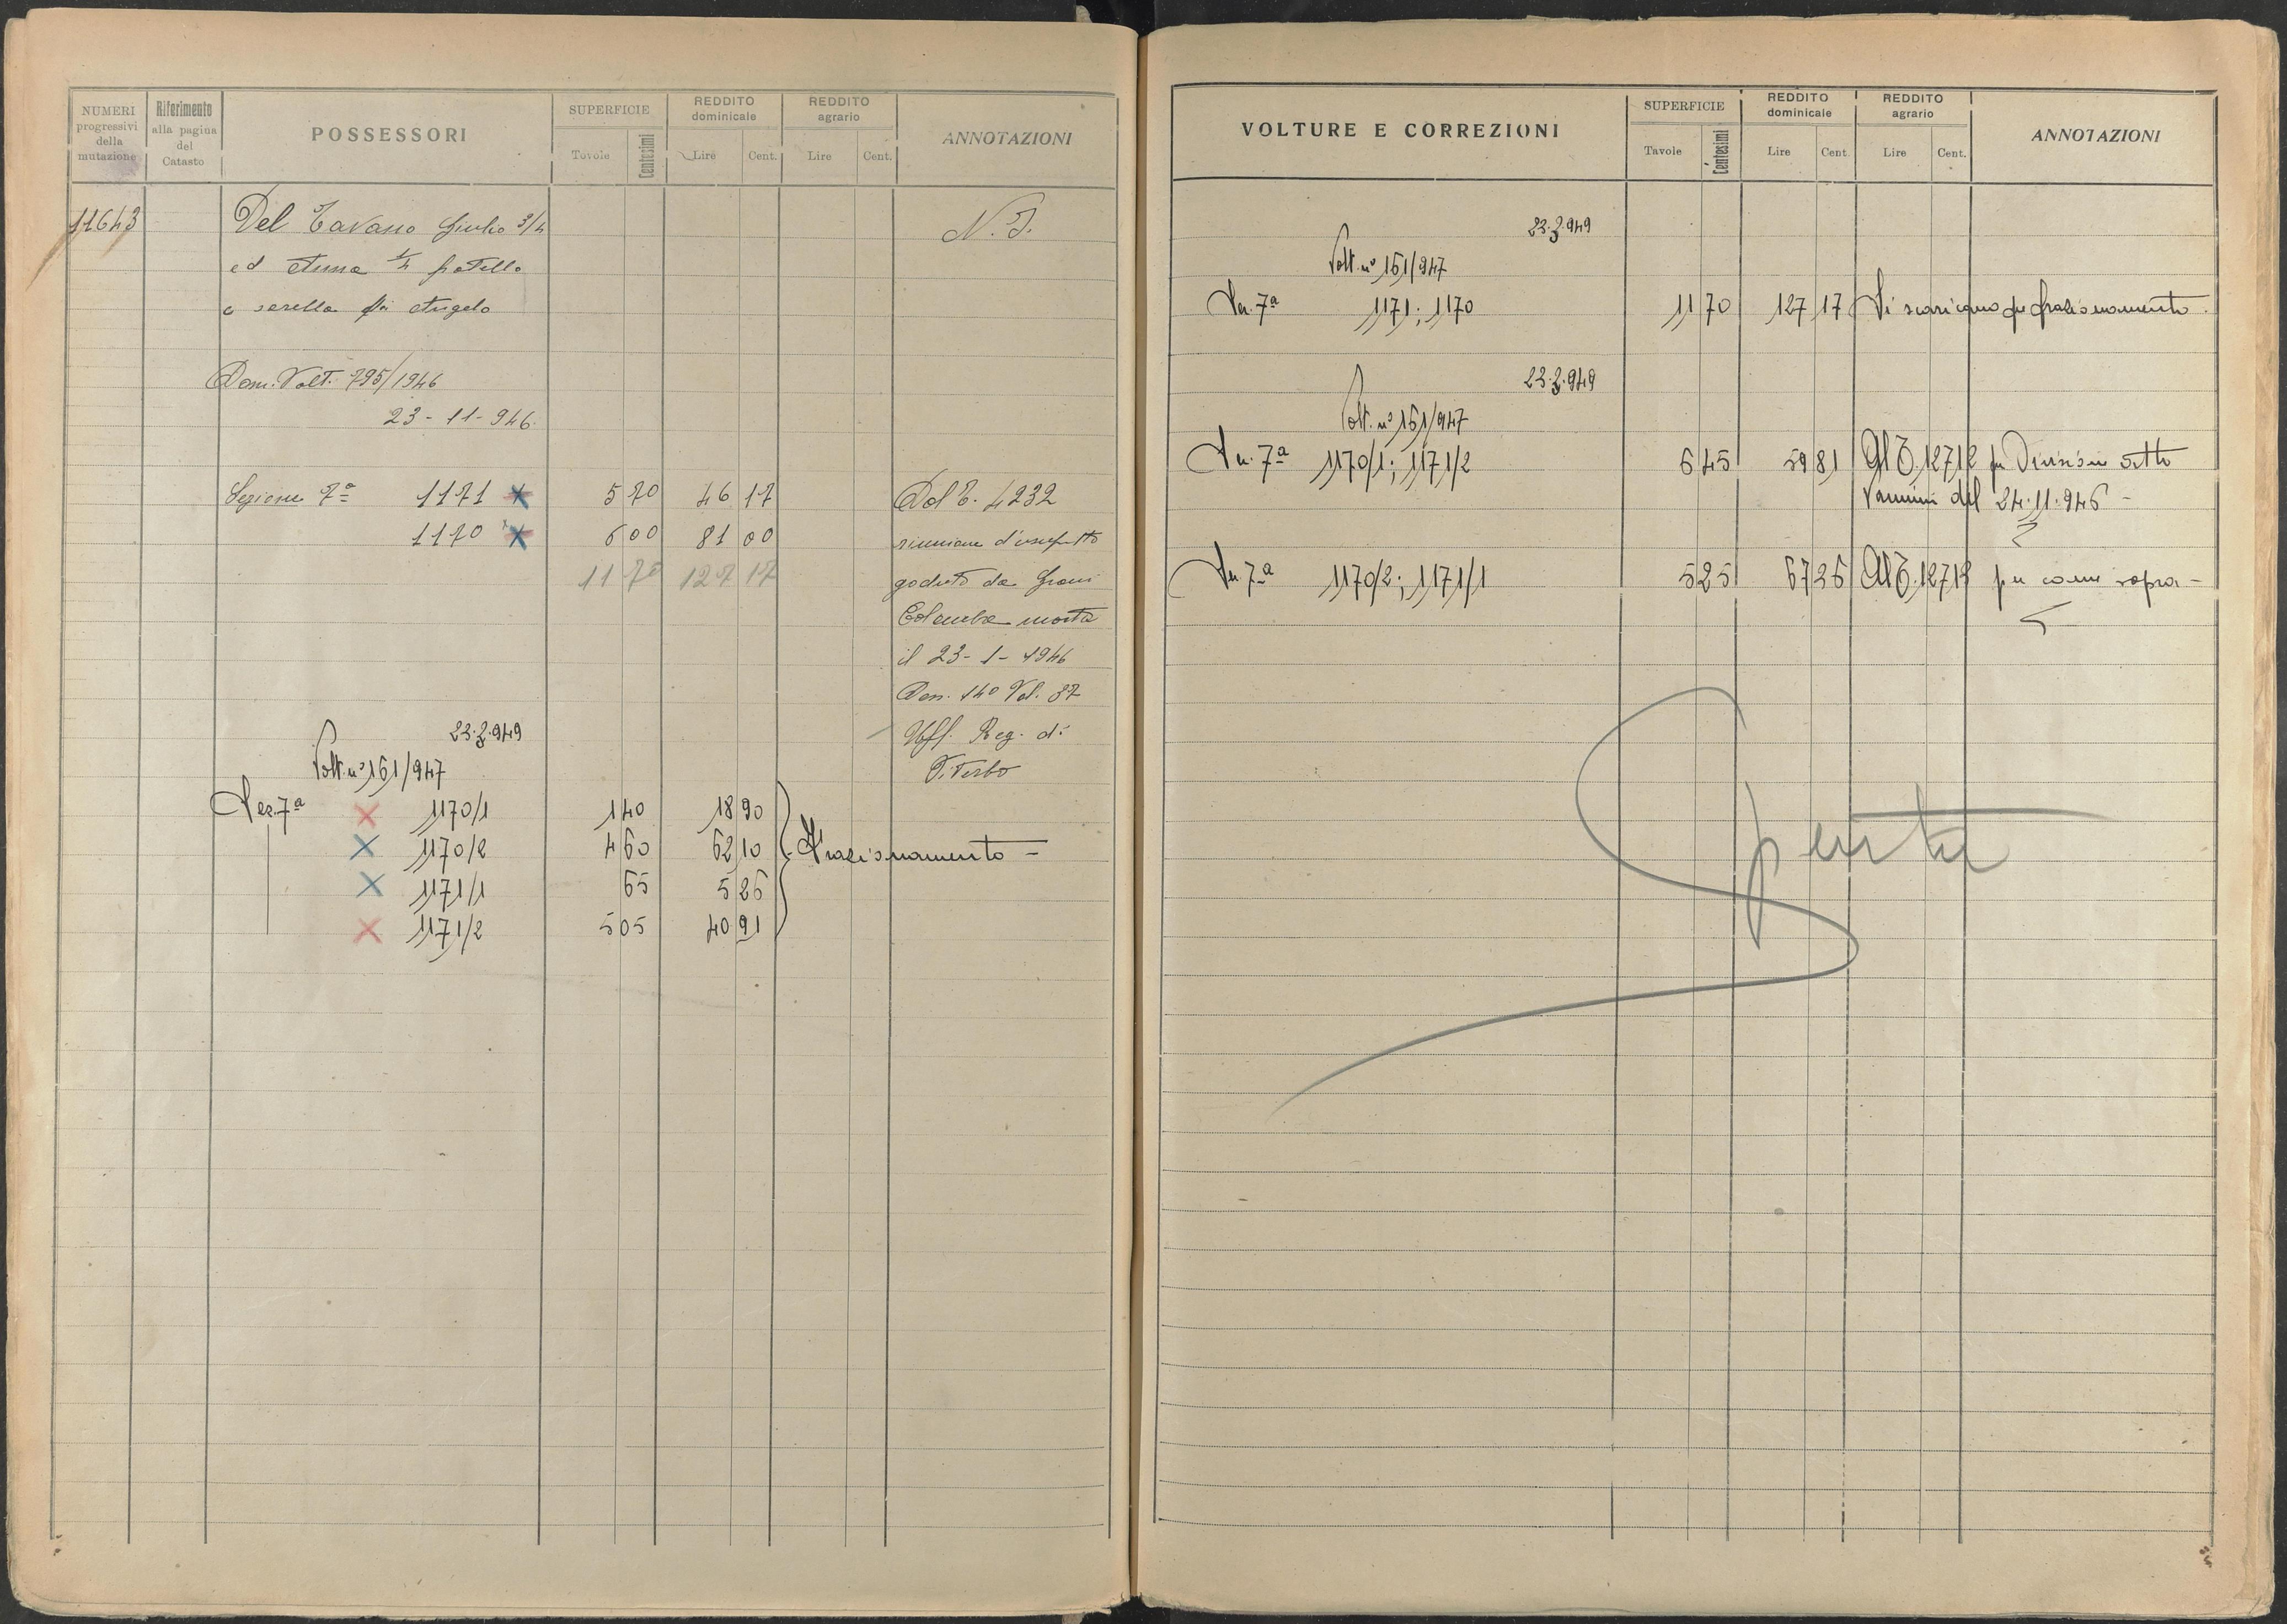 NUMERI progressivi della mutazione
Riferimento alla pagina del Catasto
POSSESSORI
SUPERFICIE
Tavole
Centesimi
REDDITO dominicale
Lire
Cent.
REDDITO agrario
Lire
Cent.
ANNOTAZIONI
11643
Del Tavano Giulio 3/4
ed Anna 1/4 fratello
e sorella fu Angelo
N. I.
Dom. Volt. 795/1946
23-11-946
Sezione 7ª 1171 5 70 46 17 Dal T. 4232
1170 6 00 81 00 riunione d'usufrutto
11 70 127 17 goduto da
Colomba morta
il 23-1-1946
Den. 140 Vol. 87
Uff. Reg. di
Viterbo
23.2.949
Volt. nº 161/947
Sez. 7ª 1170/1 1 40 18 90
1170/2 4 60 62 10 Frazionamento -
1171/1 65 5 26
1171/2 5 05 40 91
VOLTURE E CORREZIONI
SUPERFICIE
Tavole
Centesimi
REDDITO dominicale
Lire
Cent.
REDDITO agrario
Lire
Cent.
ANNOTAZIONI
23.2.949
Volt. nº 161/947
Sez. 7ª 1171; 1170 11 70 127 17 Si scaricano per frazionamento.
23.2.949
Volt. nº 161/947
Sez. 7ª 1170/1; 1171/2 6 45 59 81 Al T. 12712 per Divisione atto
Vannini del 24.11.946 -
Sez. 7ª 1170/2; 1171/1 5 25 67 36 Al T. 12713 per come sopra -
Spenta